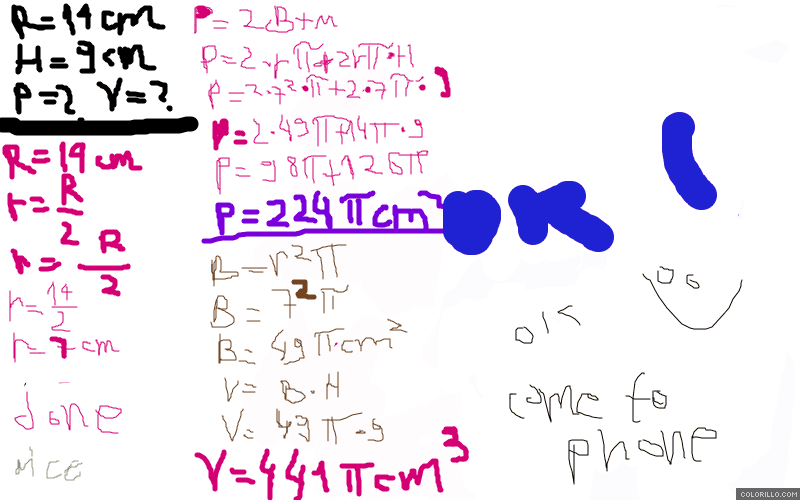 R=14cm
H=9cm
P=? V=?
R=14cm
r=R/2
r=R/2
r=14/2
r=7cm
done
nice
P=2B+M
P=2·rπ+2rπ·H
P=2·7²·π+2·7π·9
P=2·49π+14π·9
P=98π+126π
P=224πcm²
B=r²π
B=7²π
B=49π·cm²
V=B·H
V=49π·9
V=441πcm³
OK
ok
come to
phone
COLORILLO.COM